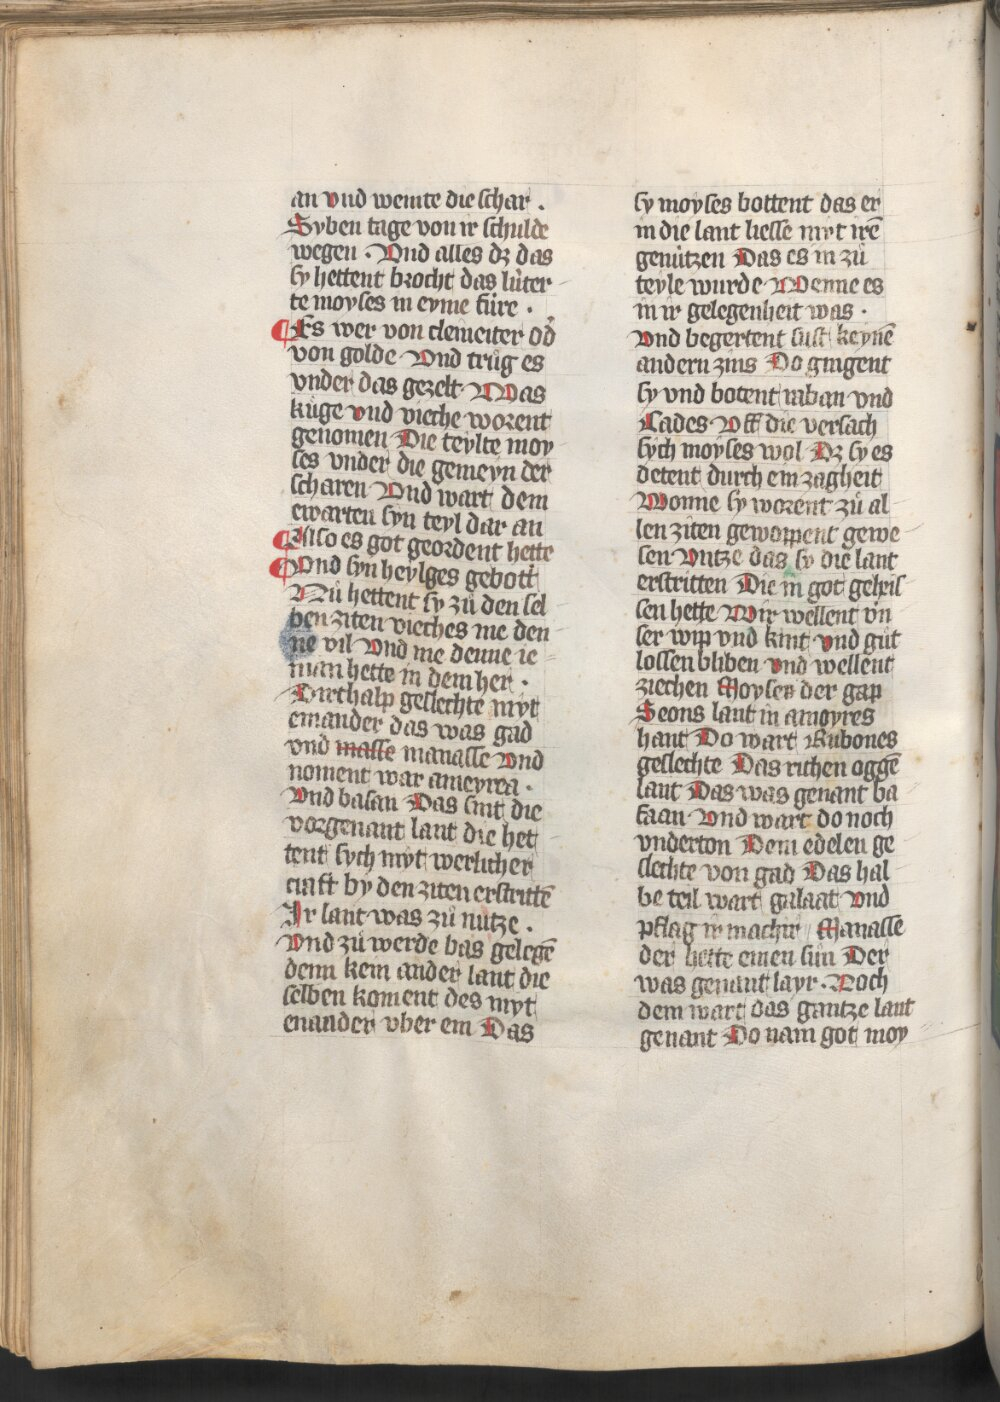 an vnd weinte die schar .
Syben tage von ir schulde
wegen . Vnd alles dz das
sy hettent brocht das lúter
te moyses in eyme füre .
Es wer von cleineiter od̾
von golde Vnd trůg es
vnder das gezelt Was
kůge vnd vieche worent
genomen Die teylte moy
ses vnder die gemeyn der
scharen Vnd wart dem
ewarten syn teyl dar an
Also es got geordent hette
Vnd syn heylges gebott
Nů hettent sy zů den sel
ben ziten vieches me den
ne vil Vnd me denne ie
man hette in dem her .
Dirthalp geslechte myt
einander das was gad
vnd masse manasse Vnd
noment war ameyrea .
Vnd basan Das sint die
vorgenant lant die het
tent sych myt werlicher
craft by den ziten erstrittē
Ir lant was zů nütze .
Vnd zů werde bas gelegē
denn kein ander lant die
selben koment des myt
enander vber ein Das
sy moyses bottent das er
in die lant liesse myt irē
genützen Das es in zů
teyle wurde Wenne es
in ir gelegenheit was .
Vnd begertent sust keynē
andern zins Do gingent
sy vnd botent raban vnd
Cades Vff die versach
sych moyses wol Dz sy es
detent durch ein zagheit
Wonne sy worent zů al
len ziten geworpent gewe
sen Vntze das sy die lant
erstritten Die in got geheis
sen hette Wir wellent vn
ser wip vnd kint vnd gůt
lossen bliben vnd wellent
ziechen Moyses der gap
Seons lant in amoyres
hant Do wart Rubones
geslechte Das richen oggē
lant Das was genant ba
saan Vnd wart do noch
vnderton Dem edelen ge
slechte von gad Das hal
be teil wart galaat Vnd
pflag ir machir Manasse
der hette einen sůn Der
was genant Iayr . Noch
dem wart das gantze lant
genant Do nam got moy